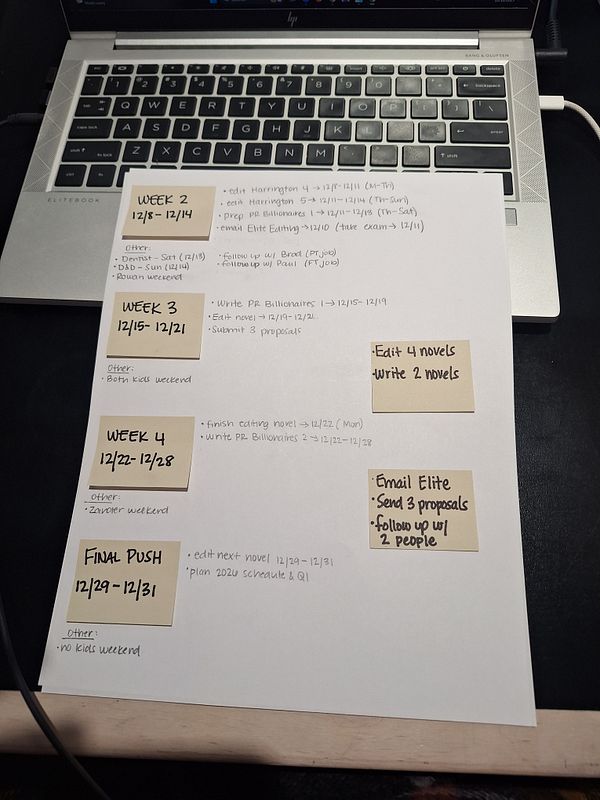 BANG & OLUFSEN
ELITEBOOK
WEEK 2
12/8-12/14
• edit Harrington 4 → 12/8-12/11 (M-Th)
• edit Harrington 5 → 12/11-12/14 (Th-Sun)
• prep PR Billionaires 1 → 12/11-12/13 (Th-Sat)
• email Elite Editing → 12/10 (take exam → 12/11)
Other:
• Dentist - Sat (12/13)
• D&D - Sun (12/14)
• Rowan weekend
• follow up w/ Brad (PT job)
• follow up w/ Paul (FT job)
WEEK 3
12/15-12/21
• Write PR Billionaires 1 → 12/15-12/19
• Edit novel → 12/19-12/21
• Submit 3 proposals
Other:
• Both kids weekend
• Edit 4 novels
• Write 2 novels
WEEK 4
12/22-12/28
• finish editing novel → 12/22 (Mon)
• write PR Billionaires 2 → 12/22-12/28
Other:
• weekend
• Email Elite
• Send 3 proposals
• follow up w/
2 people
FINAL PUSH
12/29-12/31
• edit next novel 12/29-12/31
• plan 2026 schedule & Q1
Other:
• no kids weekend